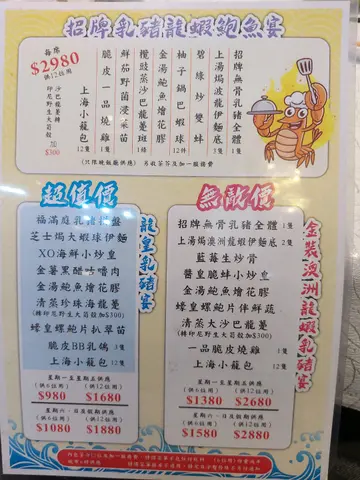 招牌乳豬龍蝦鮑魚宴
每席
$2980
供12位用
招牌無骨乳豬全體 1隻
上湯焗波龍伊麵底 2隻
碧綠炒雙蚌
柚子鍋巴蝦球 12件
金湯鮑魚燴花膠
欖豉蒸沙巴龍躉斑 1條
鮮茄野菌浸菜苗
脆皮一品燒雞 1隻
上海小籠包 12隻
沙巴龍躉轉
印尼野生大荀殼
加$300
(只限晚飯廳供應) 另收茶芥及加一服務費
超值價
龍皇乳豬宴
福滿庭乳豬拼盤
芝士焗大蝦球伊麵
XO海鮮小炒皇
金薯黑醋咕嚕肉
金湯鮑魚燴花膠
清蒸珍珠海龍躉
(轉印尼野生大荀殼加$300)
蠔皇鮑螺片扒翠苗
脆皮BB乳鴿 3隻
上海小籠包 12隻
星期一至星期五供應
(供6位用) (供12位用)
$980 $1680
星期六、日及假期供應
(供6位用) (供12位用)
$1080 $1880
無敵價
金裝澳洲龍蝦乳豬宴
招牌無骨乳豬全體 1隻
上湯焗澳洲龍蝦伊麵底 2隻
藍莓生炒骨
醬皇脆蚌小炒皇
金湯鮑魚燴花膠
蠔皇鮑螺片伴鮮蔬
清蒸大沙巴龍躉
(轉印尼野生大荀殼加$300)
一品脆燒雞 1隻
上海小籠包 12隻
星期一至星期五供應
(供6位用) (供12位用)
$1380 $2680
星期六、日及假期供應
(供6位用) (供12位用)
$1580 $2880